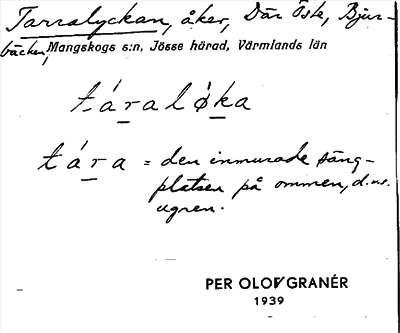 Tarralyckan, åker, Där Öste, Bjur-
bäcken, Mangskogs s:n, Jösse härad, Värmlands län
táralǿka
tára = den inmurade säng-
platsen på ommen, d.v.s.
ugnen.
PER OLOV GRANÉR
1939